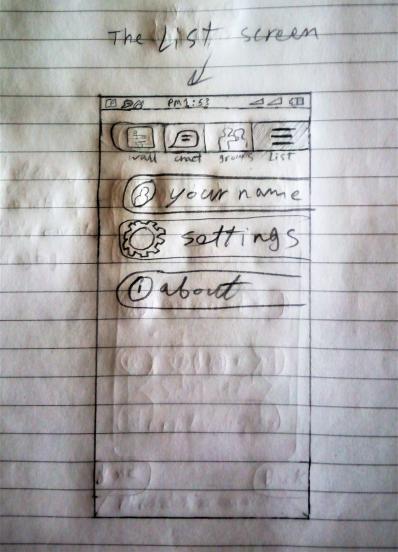 The List screen
PM 1:53
wall chat groups List
your name
settings
about